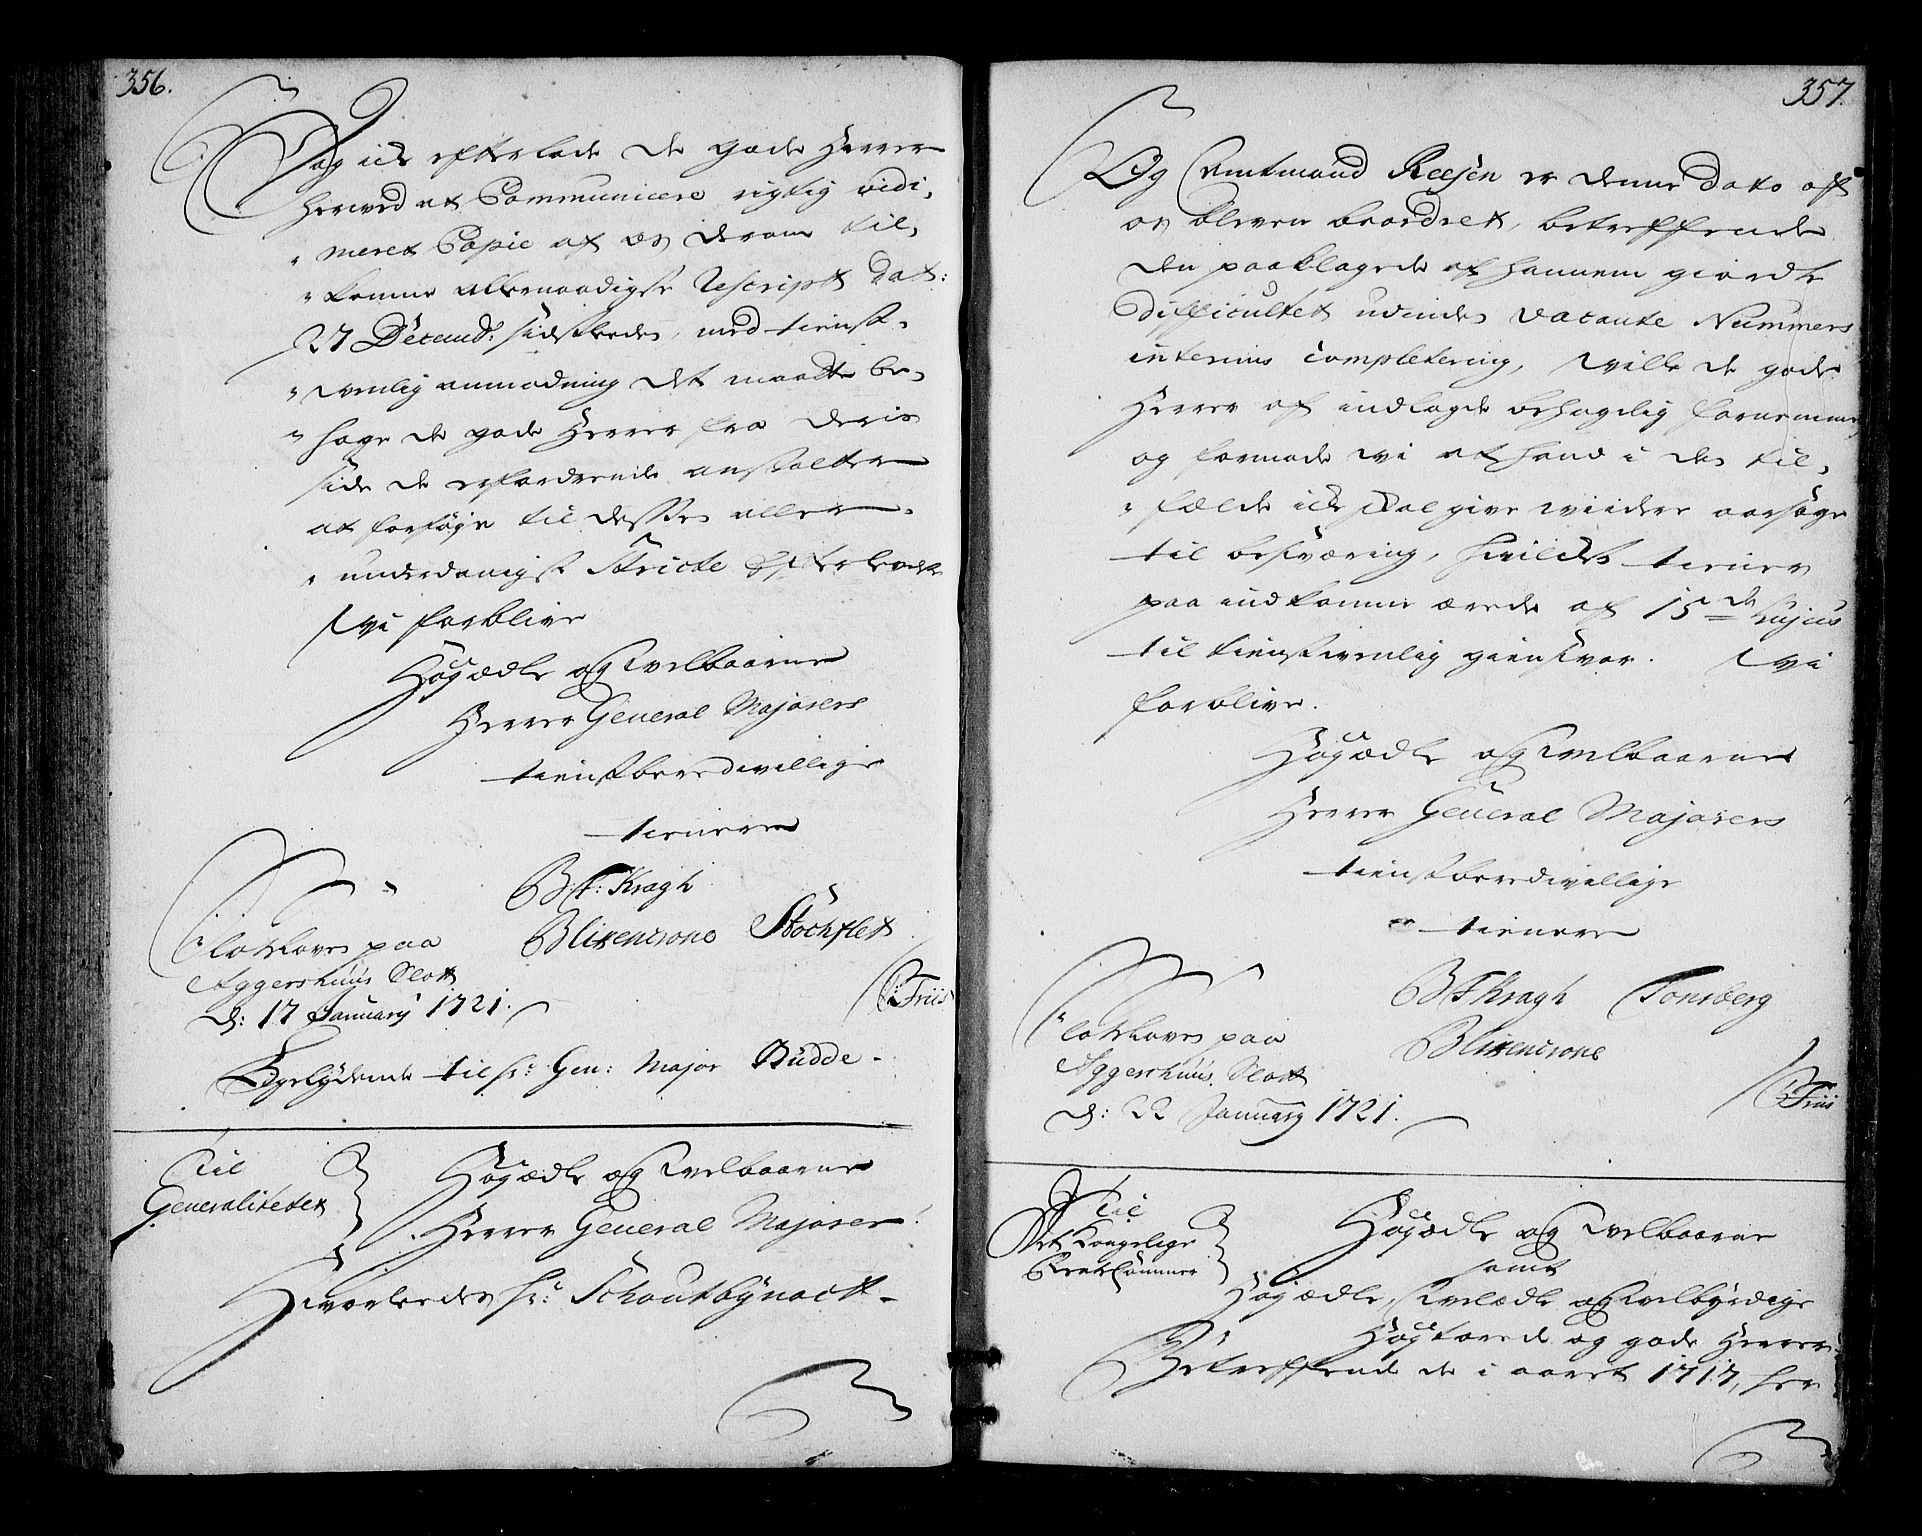 356.
Og ick efterlade de gode Herrer
herved at Communicere rigtig vidi,
„ meret Copie af os derom til,
„ komne allernaadigste Rescript dat:
27 Decemb: sidstleden, med tienst,
„ venlig anmodning det maatte be,
„ hage de gode Herrer fra deris
side de erfordrende anstalter
at forføye til dessen aller,
„ underdanigst Stricte Efterlevelse
Wi forblive
Høyædle og Welbaarne
Herrer General Majorers
tienstberedvillige
tienere
BF: Kragh
Blixencrone Stochflet
Slotzlovet paa
Aggershuus Slott
d: 17 January 1721.
C: Friis
Ligelydende til hr: Gen: Major Budde -
Til
Generalitetet
Høyædle og Welbaarne
Herrer General Majorer!
Hvorledes hr: Schoutbynacht
357.
Og Amtmand Reesen er denne dato af
os bleven beordret, betreffende
den paaklagede af hannem giorde
Difficultet udi des vacante Nummers
interims completering, Wille de gode
Herrer af indlagde behagelig fornemme,
og formode wi at hand i des til,
„ fælde ick skal give wiidere aarsage
til besværing, hvilcket tiener
paa indkomne ærede af 15de hujus
til tienstvenlig giensvar. Wi
forblive.
Høyædle og Welbaarne
Herrer General Majorers
tienstberedvillige
tienere
BF Kragh Tonsberg
Slotzlovet paa
Blixencrone
Aggershuus Slott
d: 22 January 1721.
C: Friis
Til
Det Kongelige
Rentekammer
Høyædle og Welbaarne
samt
Høyædle, Welædle og Welbyrdige
Høystærede og gode Herrer
Betreffende de i aaret 1717, her